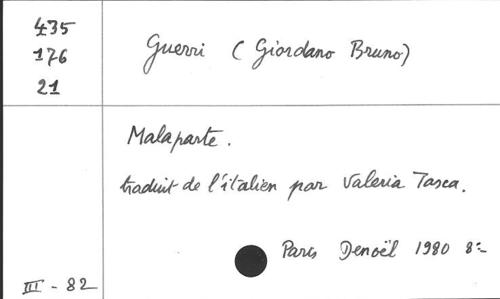 435
176
21
Guerri (Giordano Bruno)
Malaparte.
traduit de l'italien par Valeria Tasca.
Paris Denoël 1980 8º
III - 82